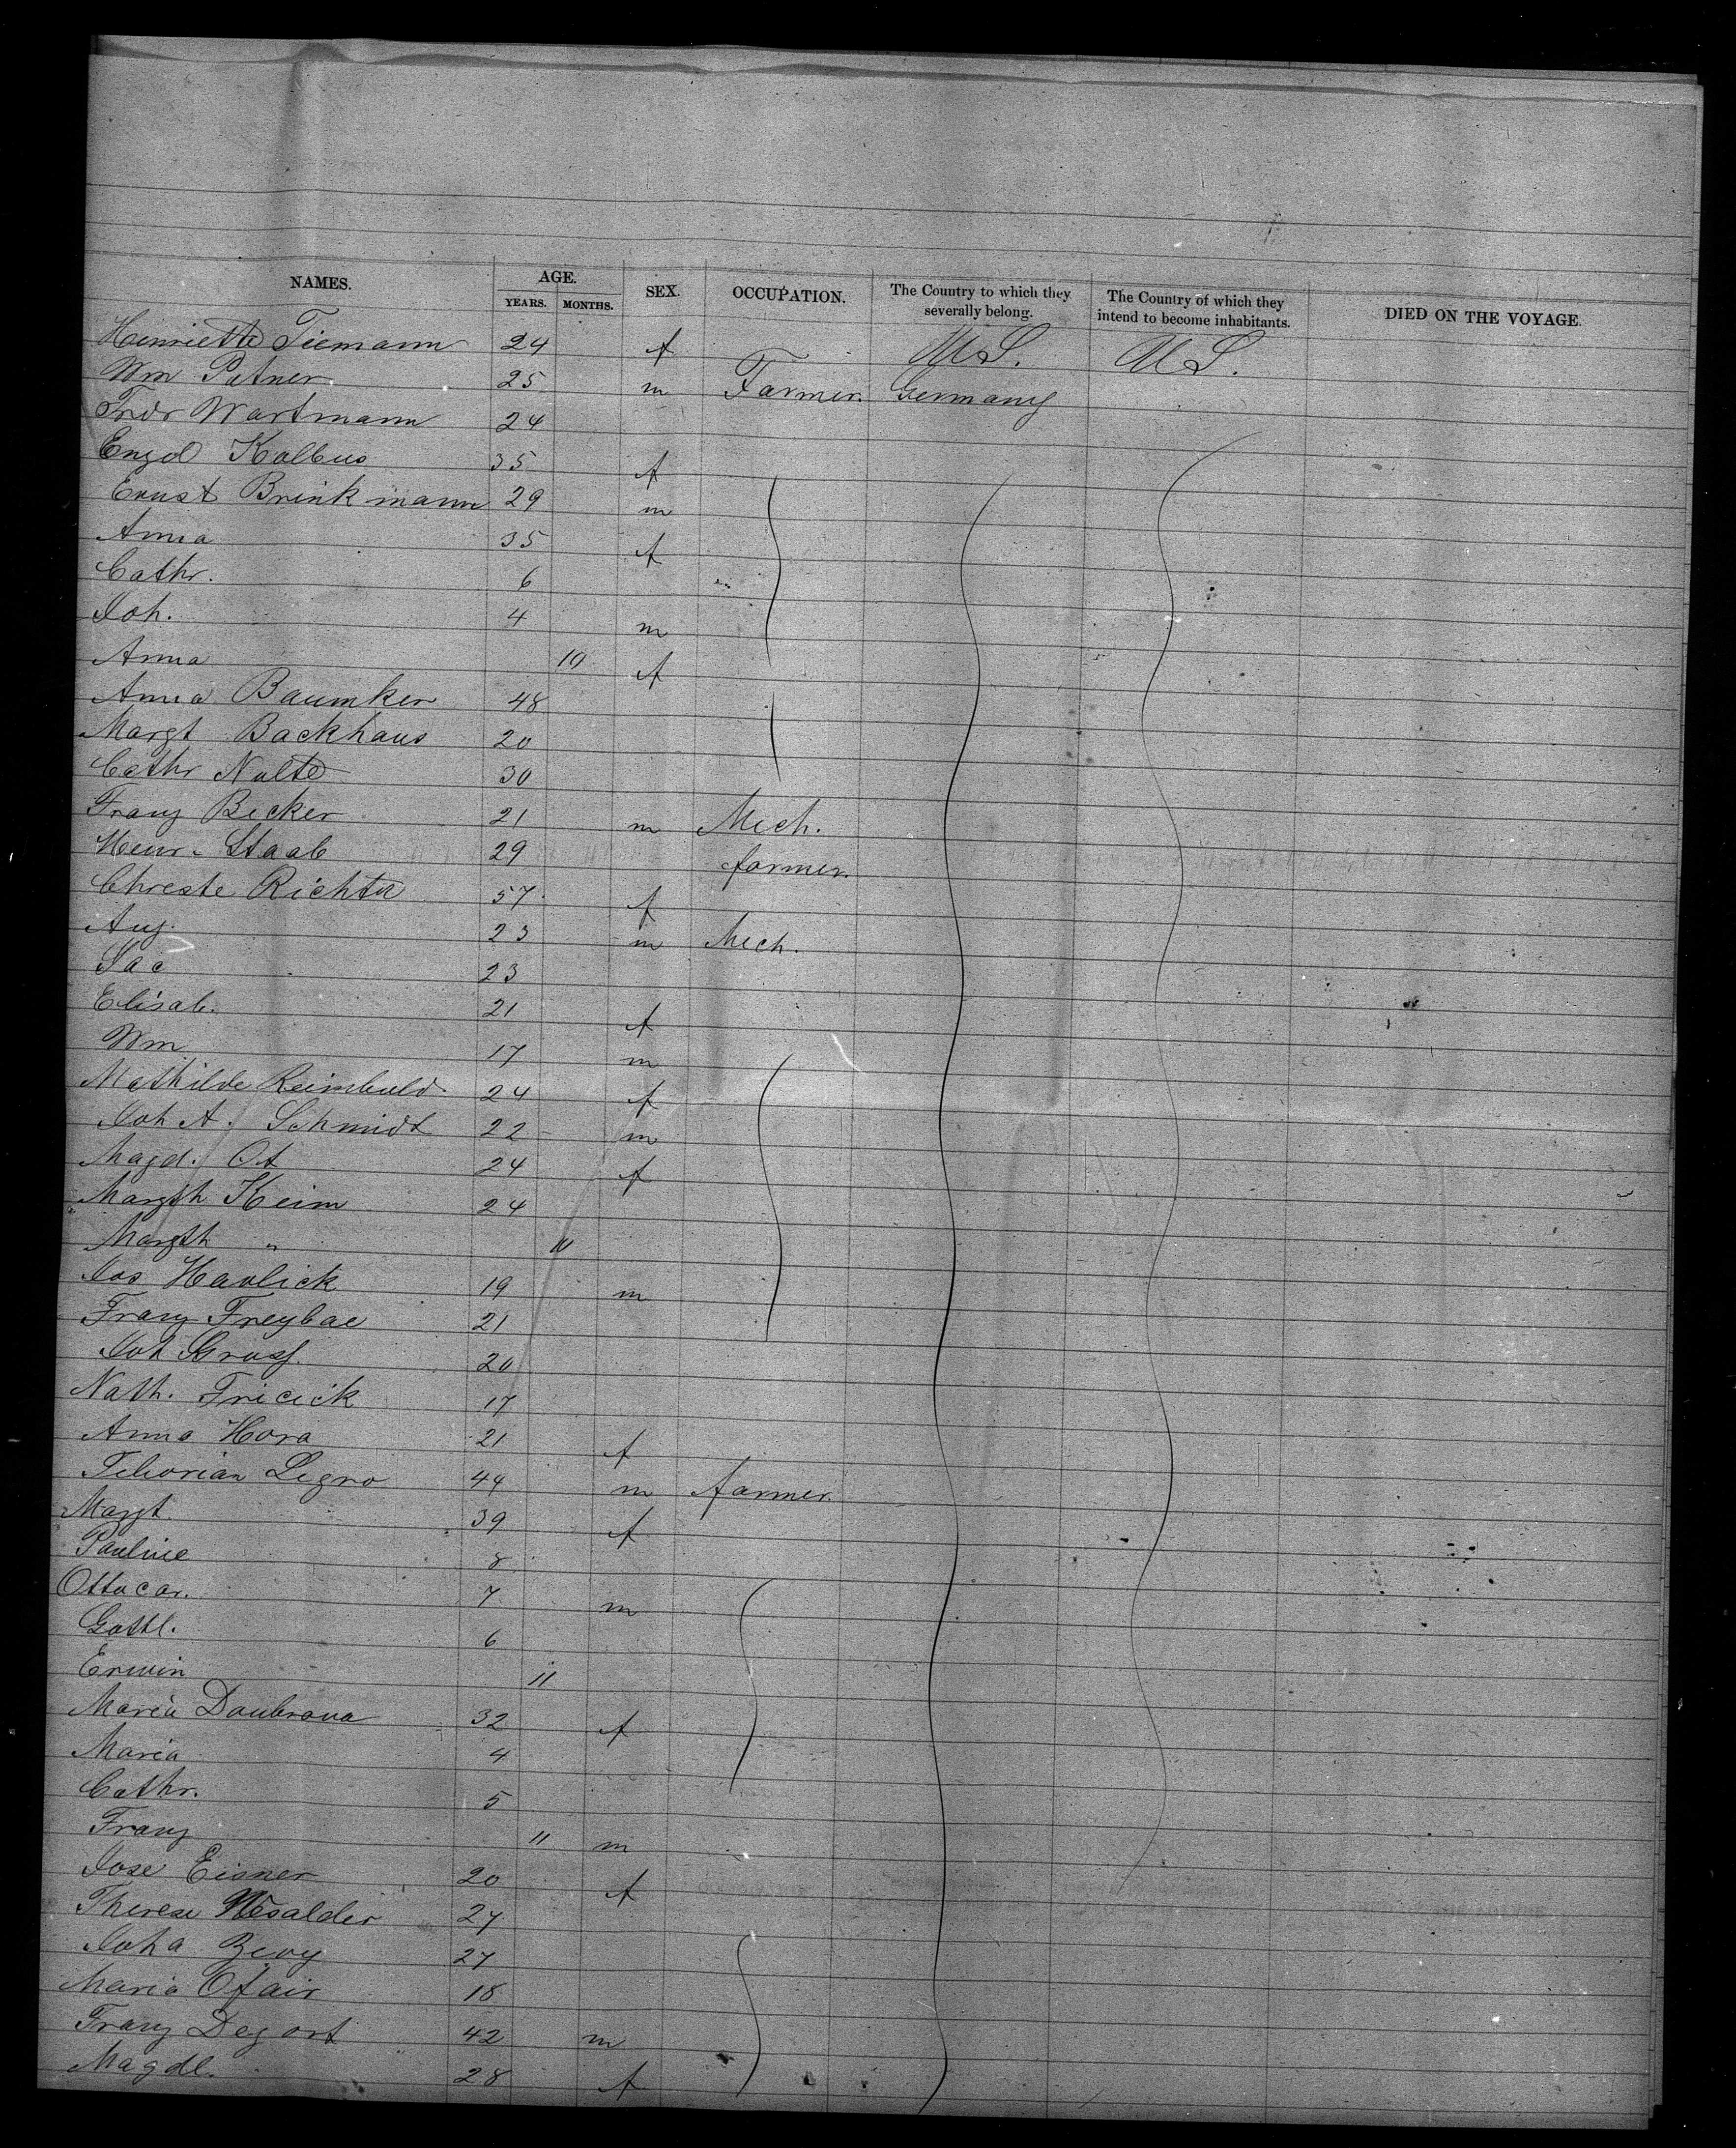 NAMES. AGE. YEARS. MONTHS. SEX. OCCUPATION. The Country to which they severally belong. The Country of which they intend to become inhabitants. DIED ON THE VOYAGE.
Henriette Tiemann 24 f U.S. U.S.
Wm Patner 25 m Farmer Germany
Fridr Wartmann 24
Engel Kolbus 35 f
Ernst Brinkmann 29 m
Anna 35 f
Cathr. 6
Joh. 4 m
Anna 10 f
Anna Baumker 48
Margt Backhaus 20
Cathr Nolte 30
Franz Becker 21 m Mech.
Henr. Staab 29 farmer
Christe Richter 57 f
Aug. 23 m Mech.
Jac 23
Elisab. 21 f
Wm 17 m
Mathilde Reimbold 24 f
Joh A. Schmidt 22 m
Magd. Ot 24 f
Margth Keim 24
Margth " 10
Jos Havlick 19 m
Franz Freybae 21
Joh Gross 20
Nath. Fricick 17
Anna Hora 21 f
Legro 44 m farmer
Margt 39 f
Pauline 8
Ottocar. 7 m
Gottl. 6
Erwin 11
Maria Doubrava 32 f
Maria 4
Cathr. 5
Franz 11 m
Jose Eisner 20 f
Therese 27
Joha 27
Maria Ofair 18
Franz Degort 42 m
Magdl. 28 f